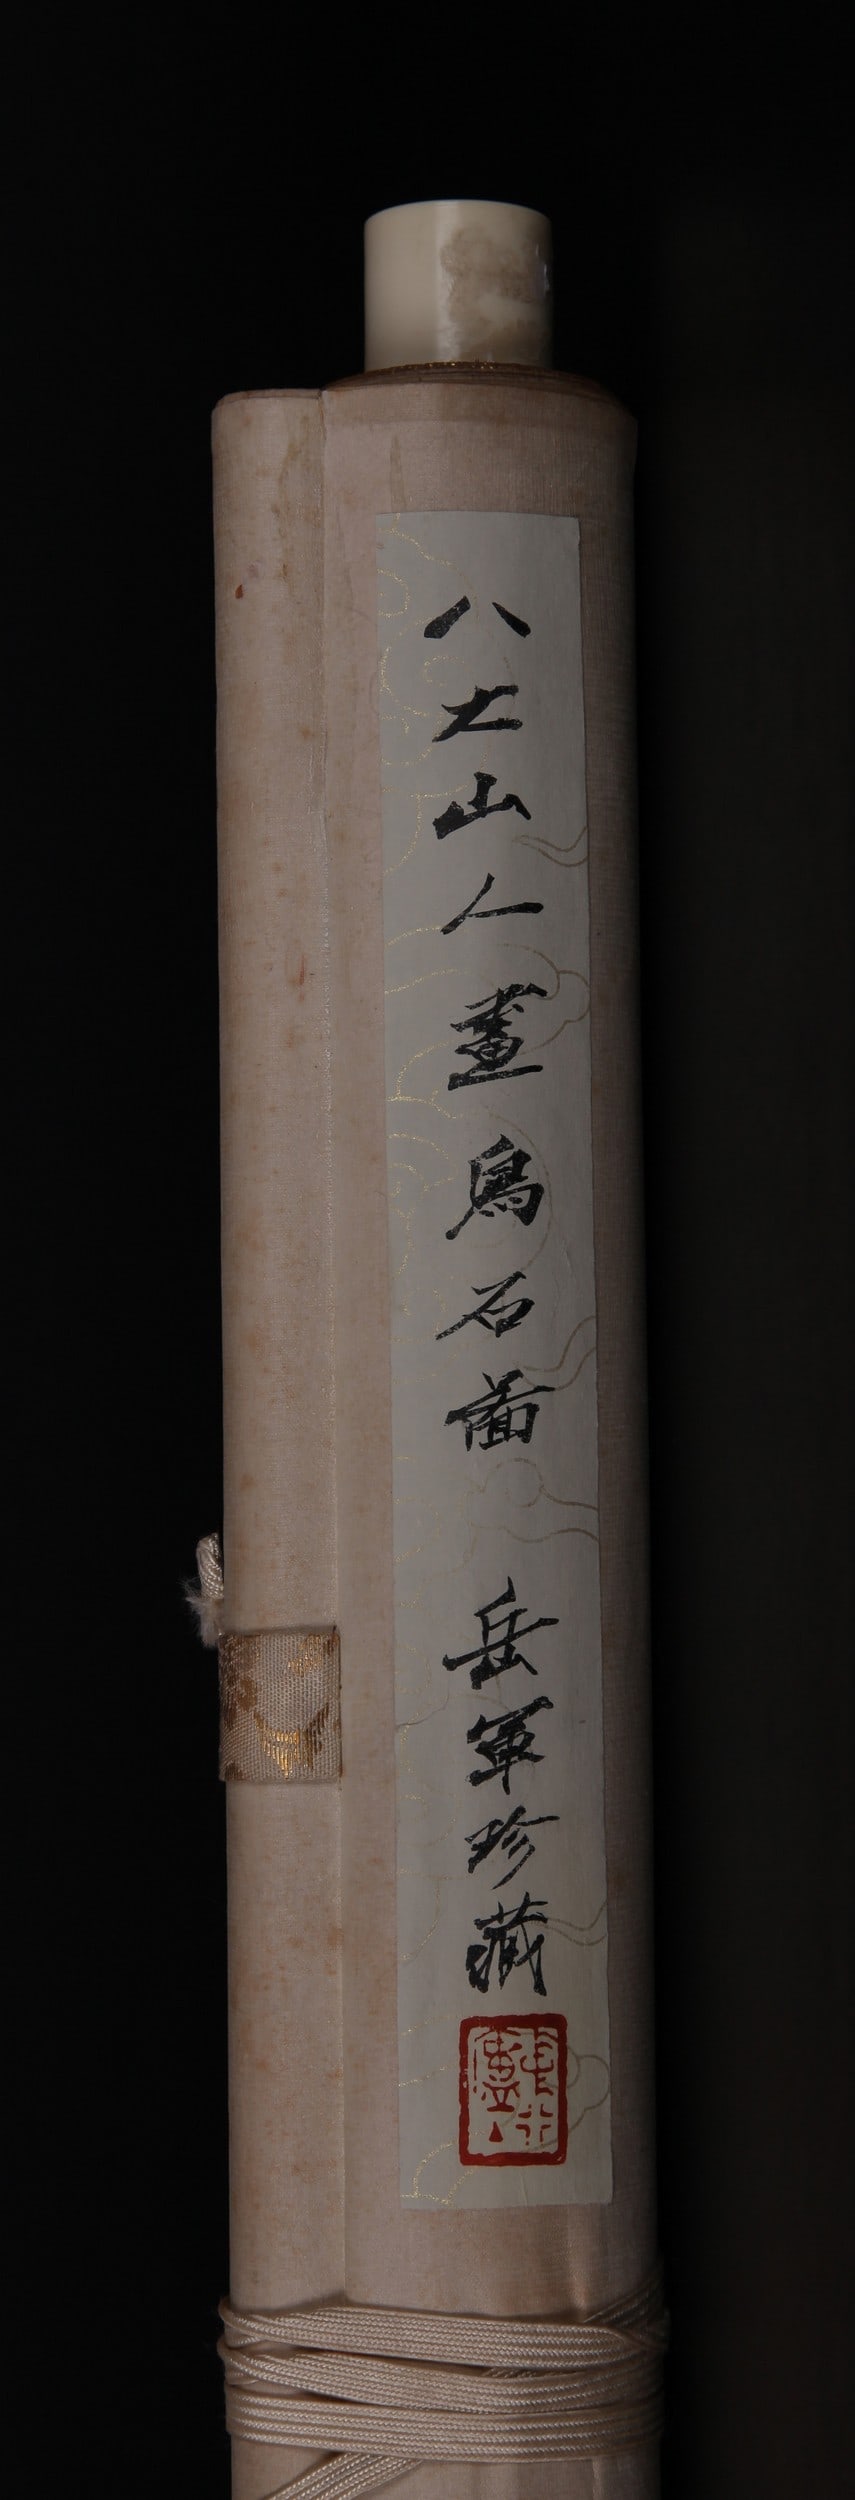 八大山人畫鳥石圖 岳軍珍藏